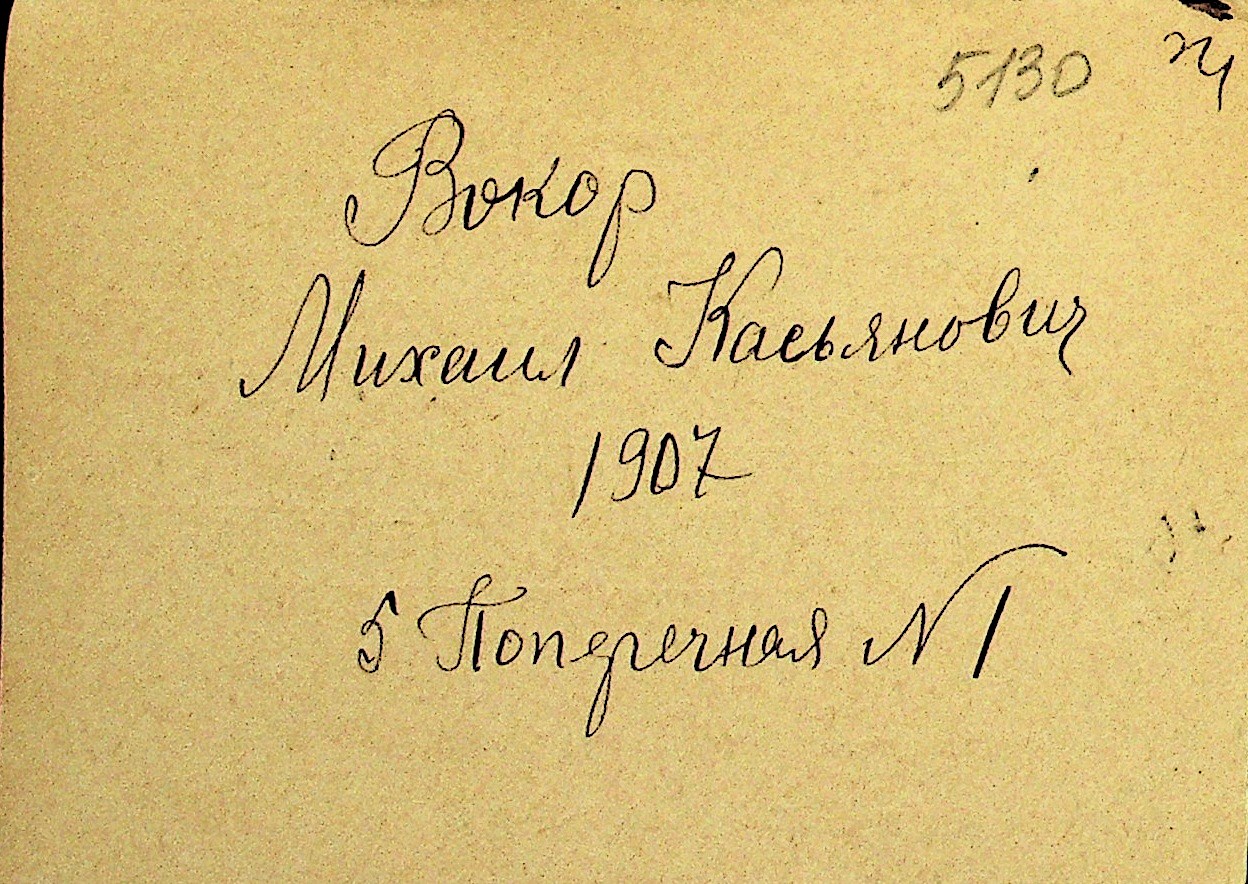 5130
Вокор
Михаил Касьянович
1907
5 Поперечная N 1